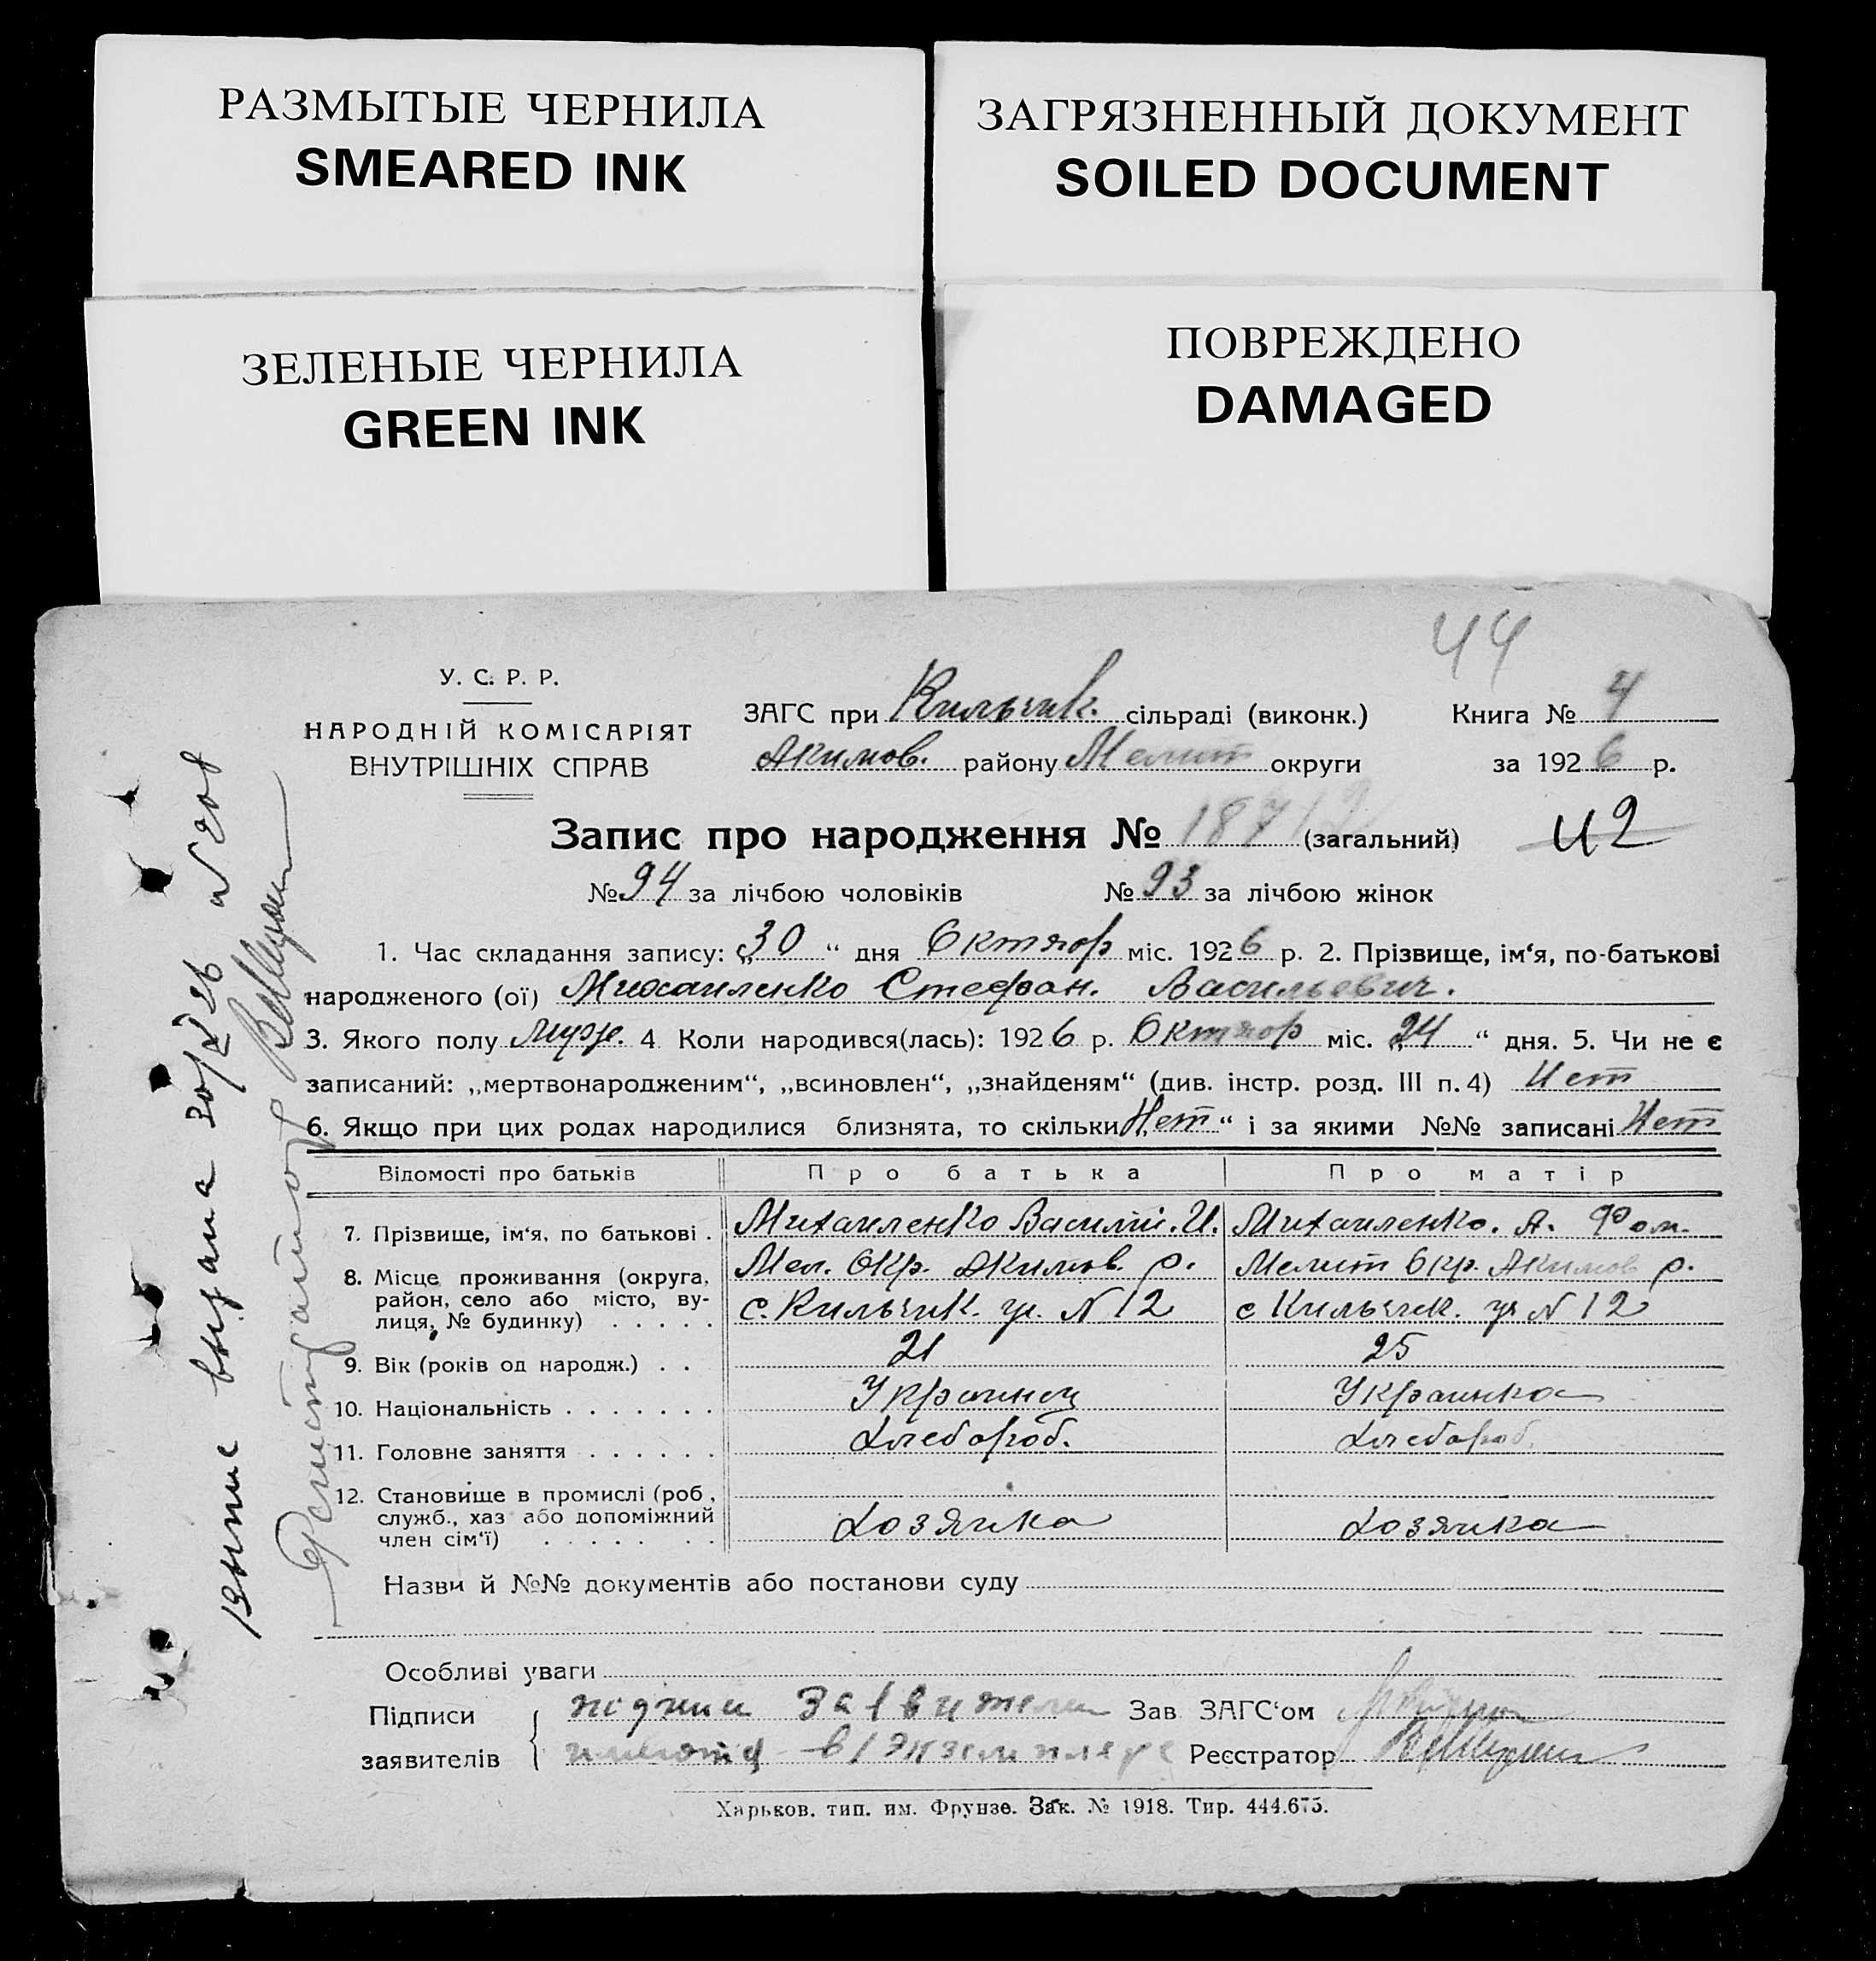 РАЗМЫТЫЕ ЧЕРНИЛА
SMEARED INK
ЗАГРЯЗНЕННЫЙ ДОКУМЕНТ
SOILED DOCUMENT
ЗЕЛЕНЫЕ ЧЕРНИЛА
GREEN INK
ПОВРЕЖДЕНО
DAMAGED
44
У. С. Р. Р.
НАРОДНІЙ КОМІСАРІЯТ
ВНУТРІШНІХ СПРАВ
ЗАГС при Кильчик. сільраді (виконк.) Книга № 4
Акимов. району Мелит округи за 1926 р.
Запис про народження № 187 (загальний) 42
№ 94 за лічбою чоловіків № 93 за лічбою жінок
1. Час складання запису: „30“ дня Октябр міс. 1926 р. 2. Прізвище, ім‘я, по-батькові
народженого (ої) Михаиленко Стефан. Васильевич.
3. Якого полу Муж. 4 Коли народився(лась): 1926 р. Октябр міс. „24“ дня. 5. Чи не є
записаний: „мертвонародженим“, „всиновлен“, „знайденям“ (див. інстр. розд. III п. 4) Нет
6. Якщо при цих родах народилися близнята, то скільки „Нет“ і за якими №№ записані Нет
Відомості про батьків Про батька Про матір
7. Прізвище, ім‘я, по батькові . Михаиленко Василий. И. Михаиленко. А. Фом.
8. Місце проживання (округа, Мел. Окр. Акимов. р. Мелит Окр. Акимов р.
район, село або місто, ву-
лиця, № будинку) . . . . . с. Кильчик. ул. N 12 с Кильчик. ул N 12
9. Вік (років од народж.) . . 21 25
10. Національність . . . . . . . Украинец Украинка
11. Головне заняття . . . . . . Хлебороб. Хлебороб.
12. Становище в промислі (роб,
служб., хаз або допоміжний
член сім‘ї) . . . . . . . Хозяика Хозяика
Назви й №№ документів або постанови суду
Особливі уваги
Підписи заявителів
подписи заявители
имеются в 1 экземпляре
Зав ЗАГС‘ом
Реєстратор
Харьков. тип. им. Фрунзе. Зак. № 1918. Тир. 444.675.
выдана 30/X 26
Регистратор